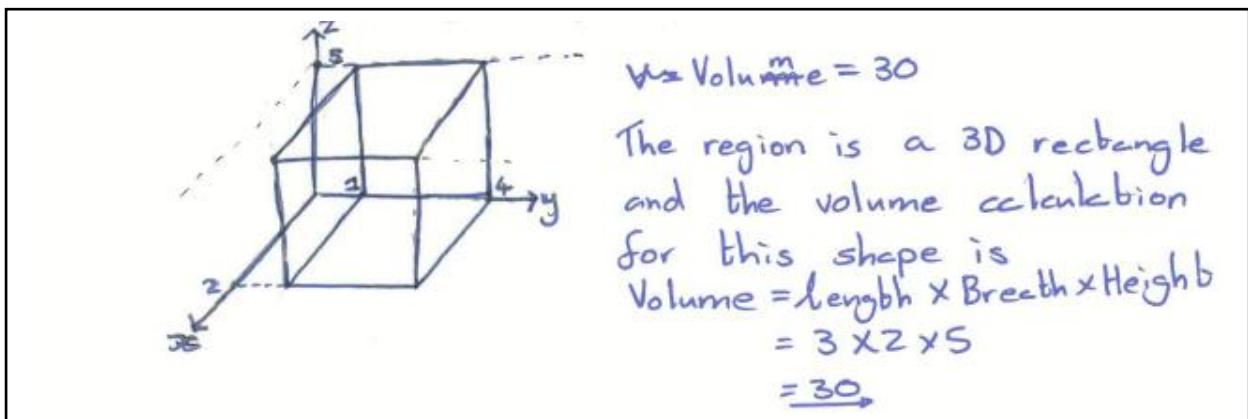 z
5
1
4
y
2
x
Volume = 30
The region is a 3D rectangle
and the volume calculation
for this shape is
Volume = length × Breath × Height
= 3 × 2 × 5
= 30